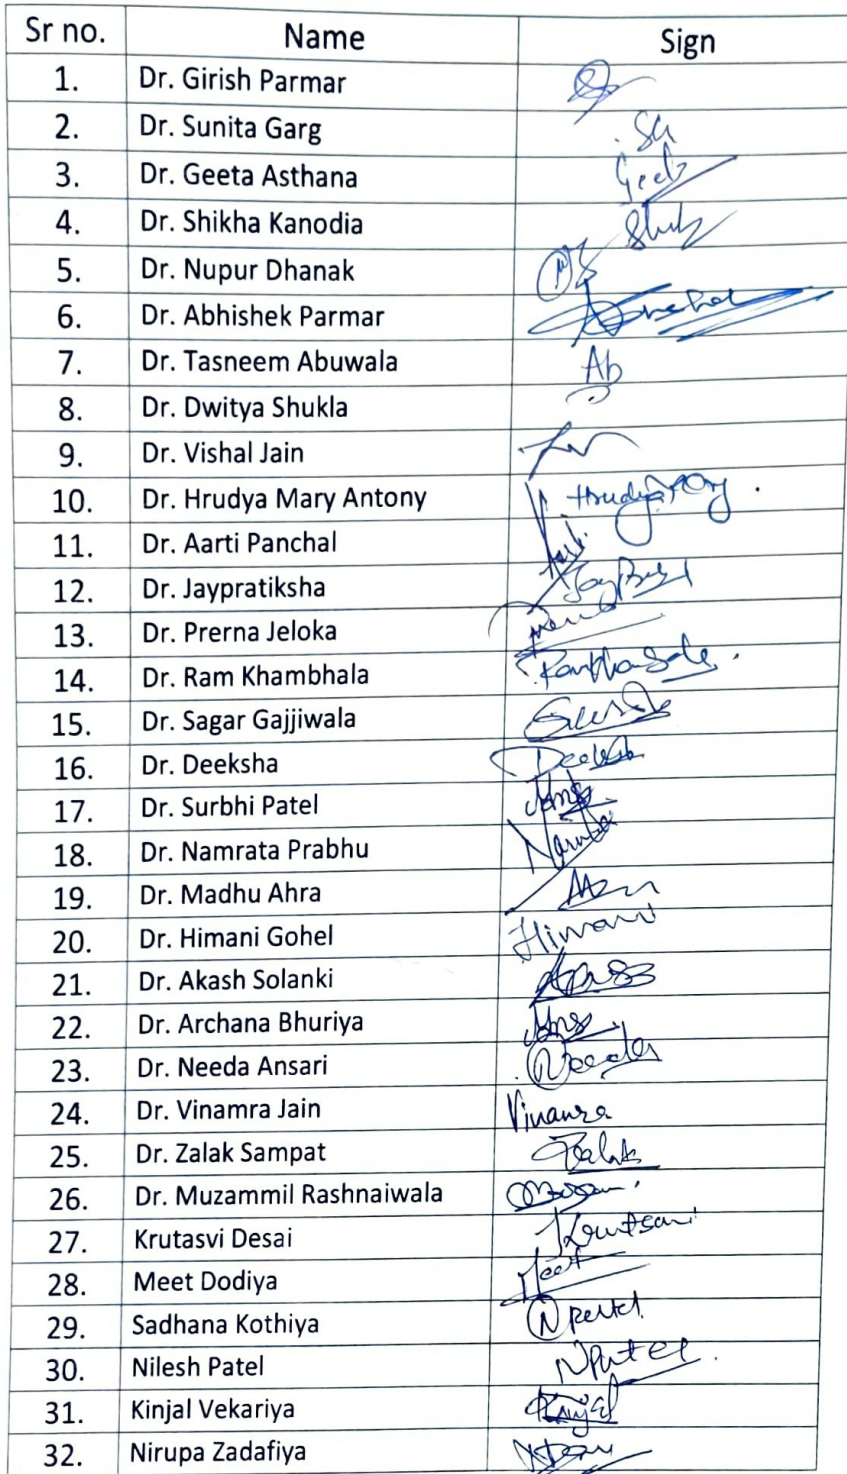 Sr no. Name Sign
1. Dr. Girish Parmar
2. Dr. Sunita Garg SG
3. Dr. Geeta Asthana Geeta
4. Dr. Shikha Kanodia
5. Dr. Nupur Dhanak
6. Dr. Abhishek Parmar
7. Dr. Tasneem Abuwala Ab
8. Dr. Dwitya Shukla
9. Dr. Vishal Jain
10. Dr. Hrudya Mary Antony
11. Dr. Aarti Panchal
12. Dr. Jaypratiksha
13. Dr. Prerna Jeloka
14. Dr. Ram Khambhala
15. Dr. Sagar Gajjiwala
16. Dr. Deeksha Deeksha
17. Dr. Surbhi Patel
18. Dr. Namrata Prabhu
19. Dr. Madhu Ahra
20. Dr. Himani Gohel Himani
21. Dr. Akash Solanki
22. Dr. Archana Bhuriya
23. Dr. Needa Ansari Needa
24. Dr. Vinamra Jain Vinamra
25. Dr. Zalak Sampat Zalak
26. Dr. Muzammil Rashnaiwala
27. Krutasvi Desai
28. Meet Dodiya Meet
29. Sadhana Kothiya
30. Nilesh Patel NPatel
31. Kinjal Vekariya Kinjal
32. Nirupa Zadafiya